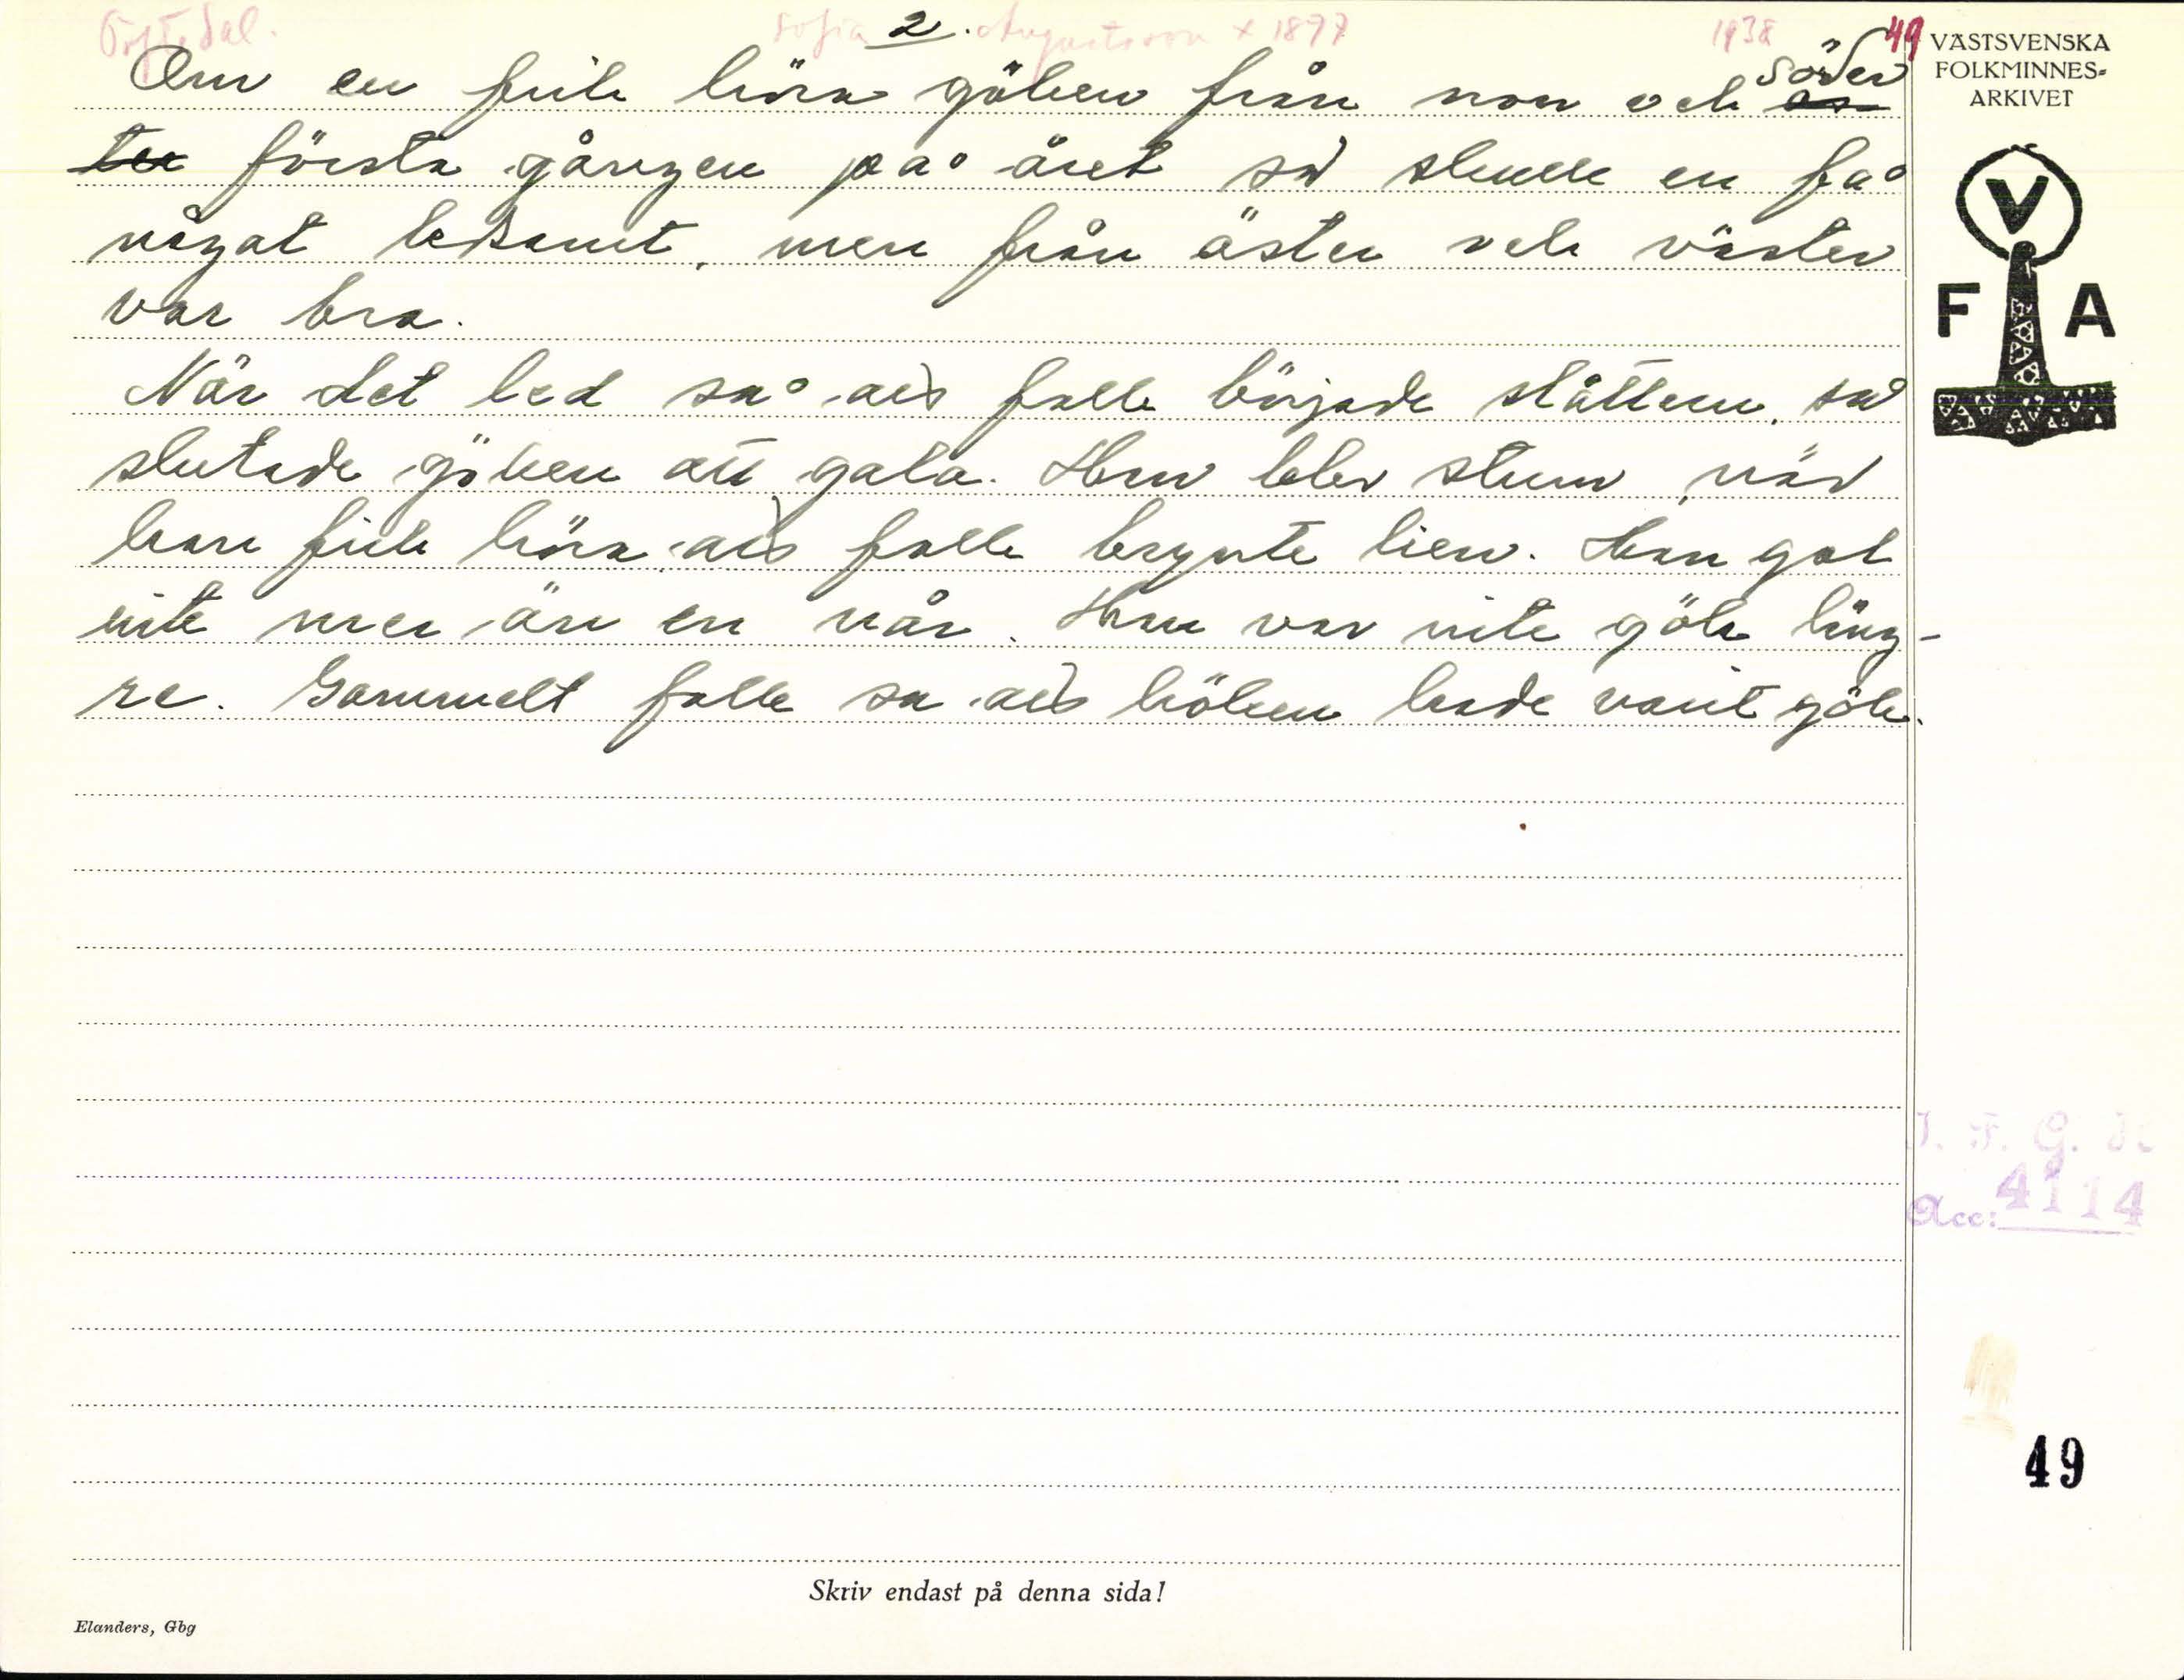 Töftedal. Sofia Augustsson * 1877 1938 49
2.
Om en fick höra göken från norr och söder
första gången på året så skulle en få
något ledsamt, men från öster och väster
var bra.
När det led så att folk började slåttern, så
slutade göken att gala. Han blev stum när
han fick höra att folk brynte lien. Han gol
inte mer än en vår. Han var inte gök läng-
re. Gammelt folk sa att höken hade varit gök.
VÄSTSVENSKA
FOLKMINNES-
ARKIVET
V
F A
I. F. G. H.
Acc: 4114
49
Skriv endast på denna sida!
Elanders, Gbg